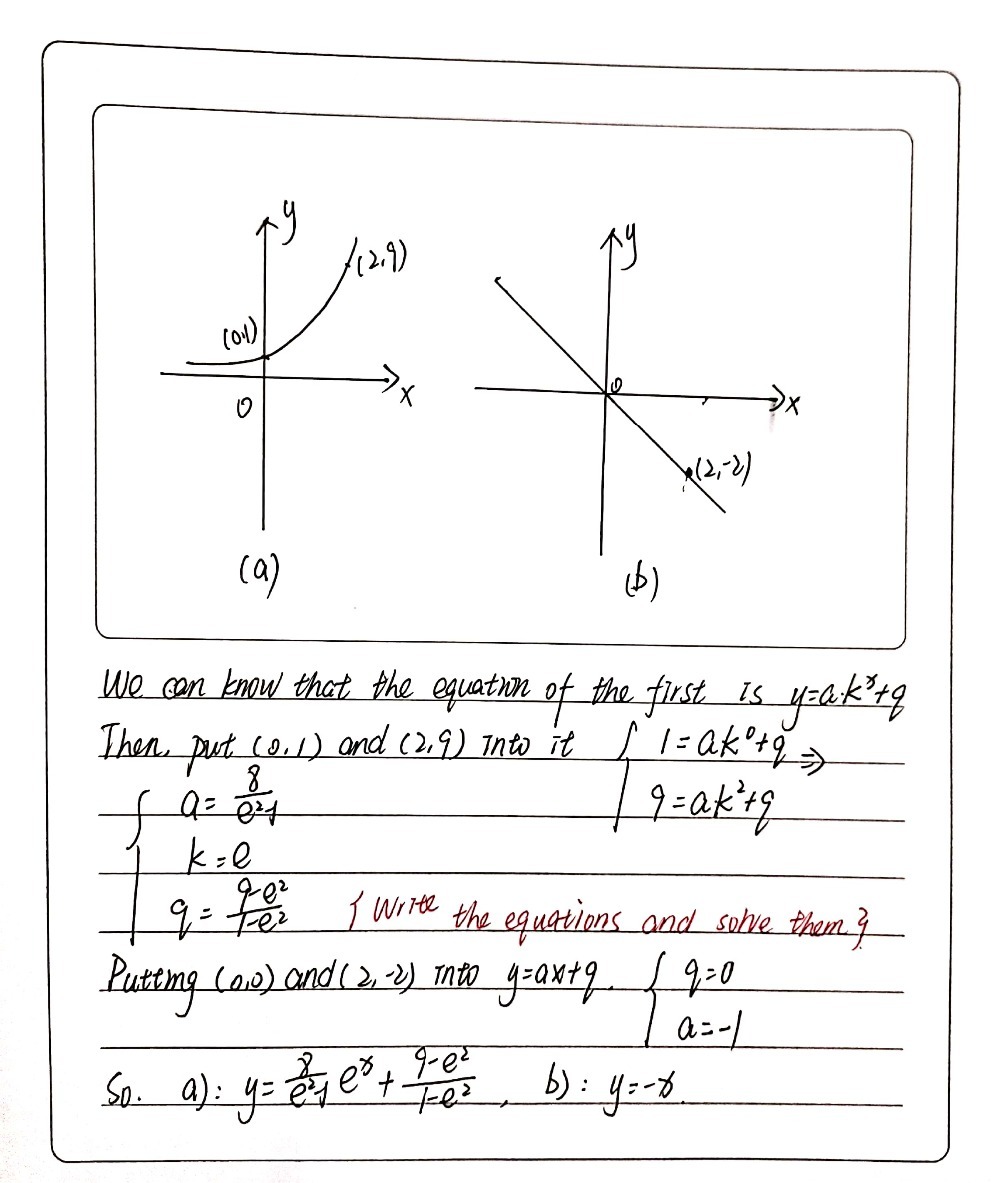 y
(2,9)
(0,1)
0
x
(a)
y
0
x
(2,-2)
(b)
We can know that the equation of the first is y=a·k^x+q
Then, put (0,1) and (2,9) into it { 1=ak^0+q ⇒
{ a= 8/(e^2-1) 9=ak^2+q
k=e
q= (9-e^2)/(1-e^2) { Write the equations and solve them }
Putting (0,0) and (2,-2) into y=ax+q. { q=0
a=-1
So. a): y= 8/(e^2-1) e^x + (9-e^2)/(1-e^2), b): y=-x.